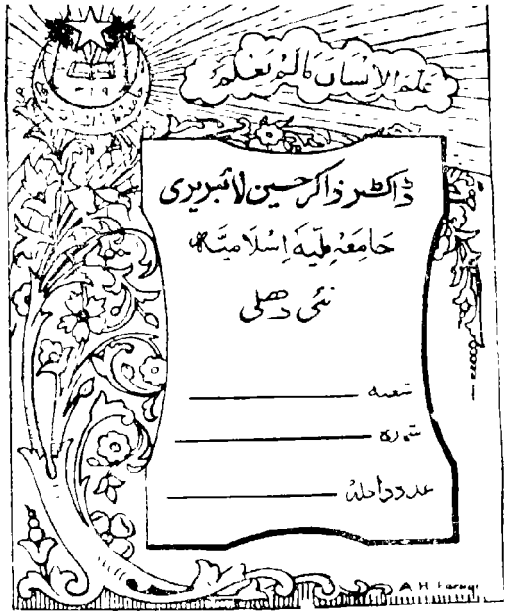 علم الانسان مالم يعلم
ڈاکٹر ذاکر حسین لائبریری
جامعہ ملیہ اسلامیہ
نئی دھلی
شعبہ
عدد داخلہ
A H Faruqi